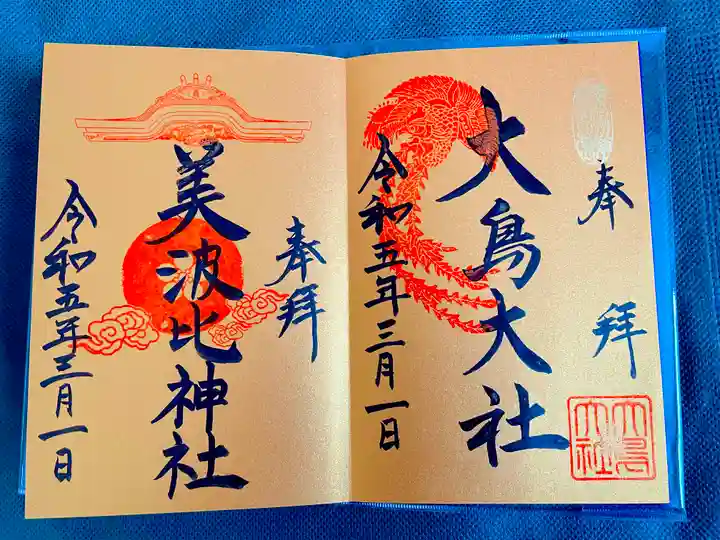 奉拝
大鳥大社
令和五年三月一日
大鳥大社
奉拝
美波比神社
令和五年三月一日